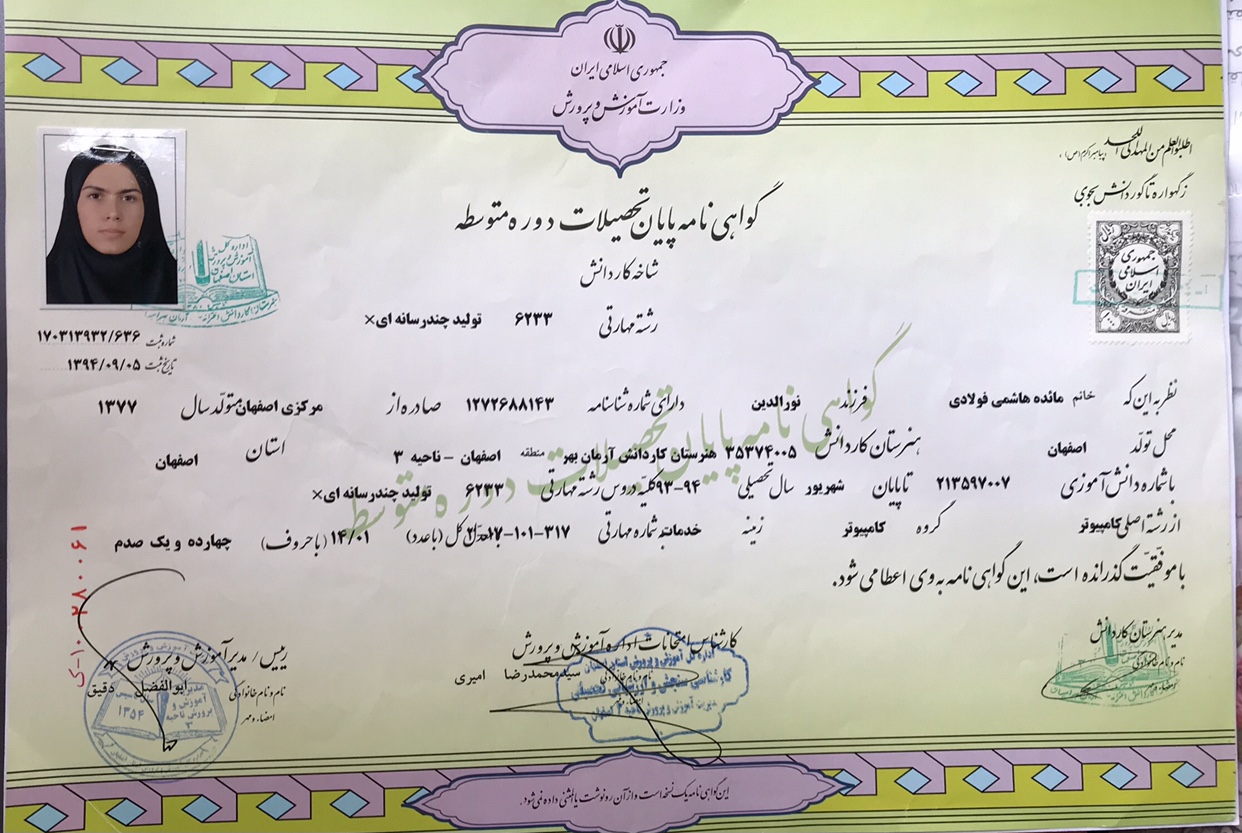 جمهوری اسلامی ایران
وزارت آموزش و پرورش
اطلبوا العلم من المهد الی اللحد
(پیامبر اکرم (ص))
ز گهواره تا گور دانش بجوی
گواهی نامه پایان تحصیلات دوره متوسطه
شاخه کاردانش
رشته مهارتی ۶۲۳۳ تولید چندرسانه ای×
جمهوری اسلامی ایران
اداره کل آموزش و پرورش استان اصفهان
شماره ثبت ۱۷۰۳۱۳۹۳۲/۶۳۶
تاریخ ثبت ۱۳۹۴/۰۹/۰۵
نظر به این که خانم مائده هاشمی فولادی فرزند نورالدین دارای شماره شناسنامه ۱۲۷۲۶۸۸۱۴۳ صادره از مرکزی اصفهان متولد سال ۱۳۷۷
محل تولد اصفهان هنرستان کاردانش ۳۵۳۷۴۰۰۵ هنرستان کاردانش آرمان بهر منطقه اصفهان - ناحیه ۳ استان اصفهان
با شماره دانش آموزی ۲۱۳۵۹۷۰۰۷ تا پایان شهریور سال تحصیلی ۹۴-۹۳ کلیه دروس رشته مهارتی ۶۲۳۳ تولید چندرسانه ای×
از رشته اصلی کامپیوتر گروه کامپیوتر زمینه خدمات به شماره مهارتی ۳۱۷-۱۰۱-۱۷-۲ با معدل کل (با عدد) ۱۴/۰۱ (با حروف) چهارده و یک صدم
با موفقیت گذرانده است، این گواهی نامه به وی اعطا می شود.
گواهی نامه پایان تحصیلات دوره متوسطه
ک-۱۰ ۲۸۰۰۶۱
مدیر هنرستان کاردانش
نام و نام خانوادگی
کارشناس امتحانات اداره آموزش و پرورش
نام و نام خانوادگی سیدمحمدرضا امیری
اداره کل آموزش و پرورش استان اصفهان
کارشناسی سنجش و ارزشیابی تحصیلی
مدیریت آموزش و پرورش ناحیه ۳ اصفهان
رییس / مدیر آموزش و پرورش
نام و نام خانوادگی ابوالفضل دقیق
امضاء و مهر
آموزش و پرورش ناحیه ۳
۱۳۵۴
این گواهی نامه یک نسخه است و از آن رونوشت یا المثنی داده نمی شود.